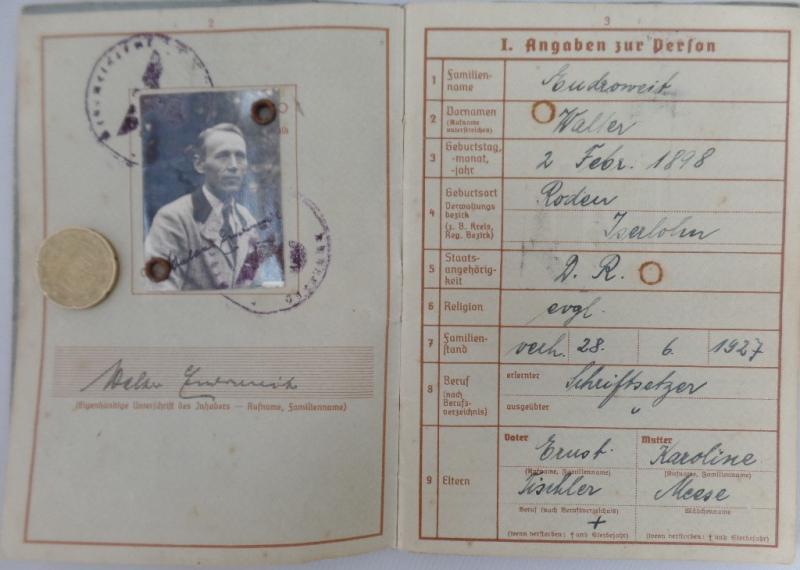 2
Walter
(Eigenhändige Unterschrift des Inhabers — Rufname, Familienname)
3
I. Angaben zur Person
1 Familienname Endroweit
2 Vornamen (Rufname unterstreichen) Walter
3 Geburtstag, -monat, -jahr 2 Febr. 1898
4 Geburtsort Verwaltungsbezirk (z. B. Kreis, Reg. Bezirk) Roden
Iserlohn
5 Staatsangehörigkeit D. R.
6 Religion evgl.
7 Familienstand verh. 28. 6. 1927
8 Beruf (nach Berufsverzeichnis) erlernter Schriftsetzer
ausgeübter "
9 Eltern
Vater Ernst
(Rufname, Familienname)
Tischler
Beruf (nach Berufsverzeichnis)
+
(wenn verstorben: † und Sterbejahr)
Mutter Karoline
(Rufname, Familienname)
Meese
Mädchenname
(wenn verstorben: † und Sterbejahr)